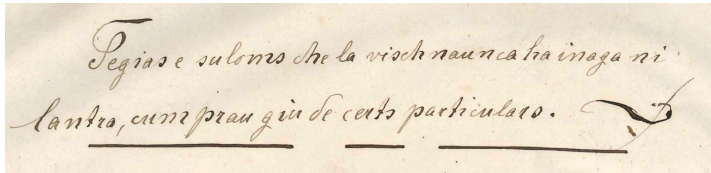 Tegias e suloms che la vischnaunca ha inaga ni
lantra, cum prau giu de certs particulars.